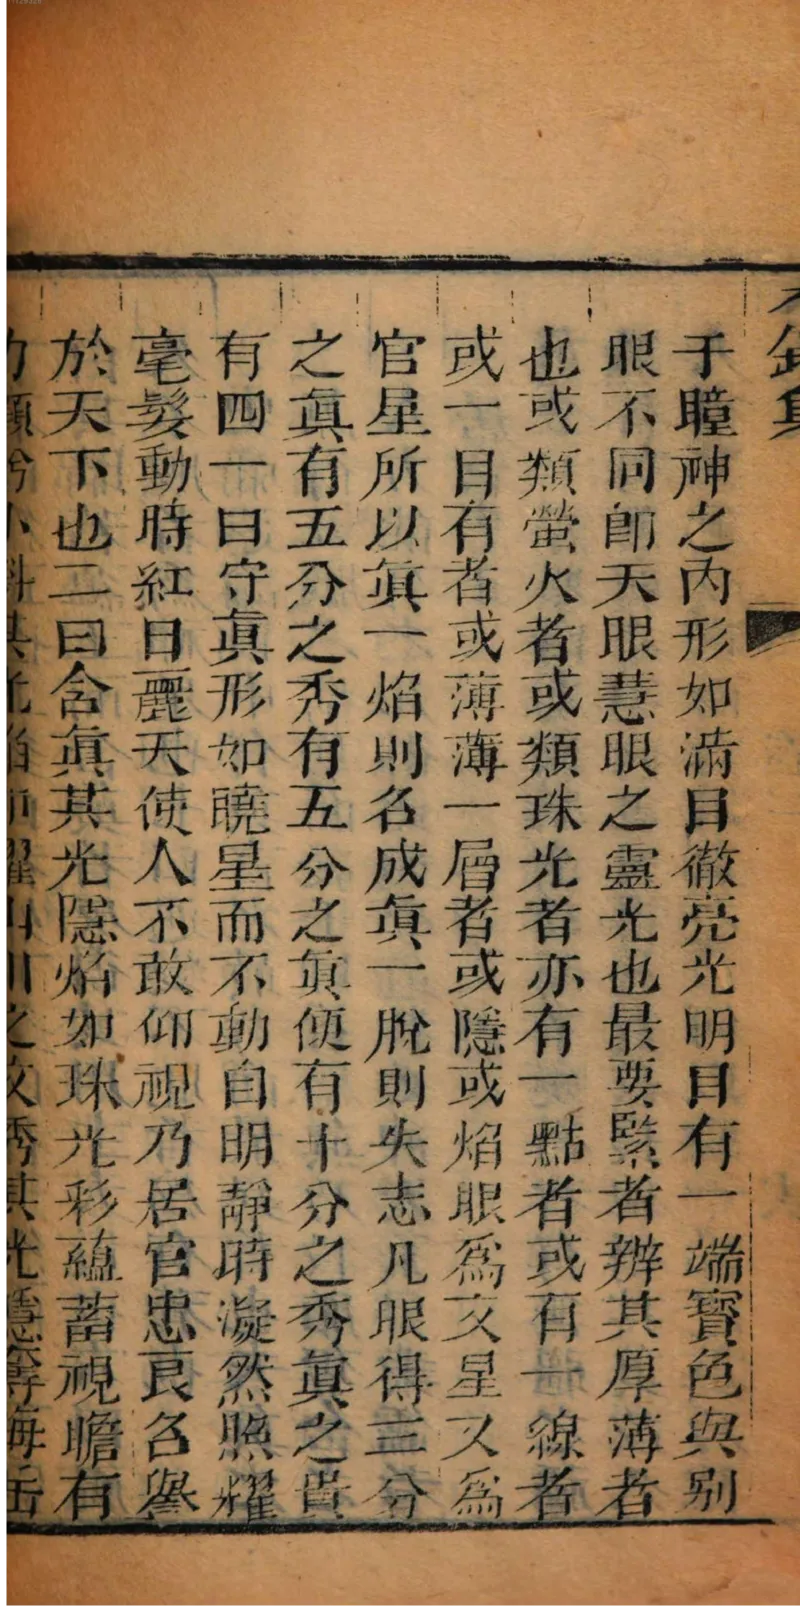 于瞳神之內形如滿目徹亮光明目有一端寶色與别
眼不同卽天眼慧眼之靈光也最要緊者辨其厚薄者
也或類螢火者或類珠光者亦有一點者或有一線者
或一目有者或薄薄一層者或隱或焰眼爲文星又爲
官星所以眞一焰則名成眞一脫則失志凡眼得三分
之眞有五分之秀有五分之眞便有十分之秀眞之貴
有四一曰守眞形如曉星而不動自明靜時凝然照耀
毫髮動時紅日麗天使人不敢仰視乃居官忠良名譽
於天下也二曰含眞其光隱焰如珠光彩蘊蓄視瞻有